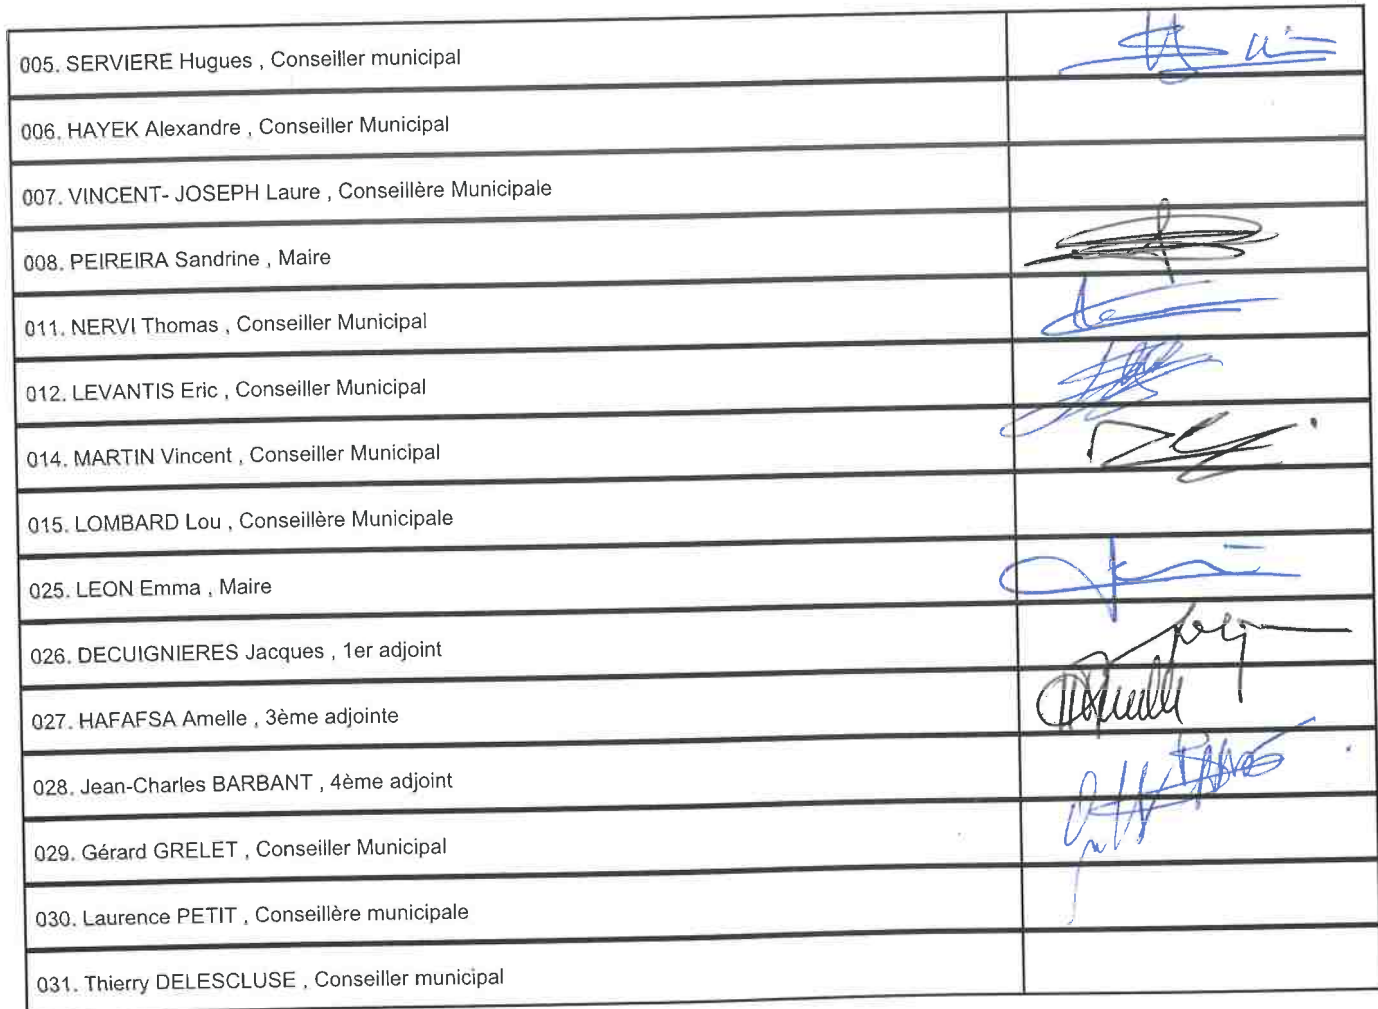 005. SERVIERE Hugues , Conseiller municipal
006. HAYEK Alexandre , Conseiller Municipal
007. VINCENT- JOSEPH Laure , Conseillère Municipale
008. PEIREIRA Sandrine , Maire
011. NERVI Thomas , Conseiller Municipal
012. LEVANTIS Eric , Conseiller Municipal
014. MARTIN Vincent , Conseiller Municipal
015. LOMBARD Lou , Conseillère Municipale
025. LEON Emma , Maire
026. DECUIGNIERES Jacques , 1er adjoint
027. HAFAFSA Amelle , 3ème adjointe
028. Jean-Charles BARBANT , 4ème adjoint
029. Gérard GRELET , Conseiller Municipal
030. Laurence PETIT , Conseillère municipale
031. Thierry DELESCLUSE , Conseiller municipal